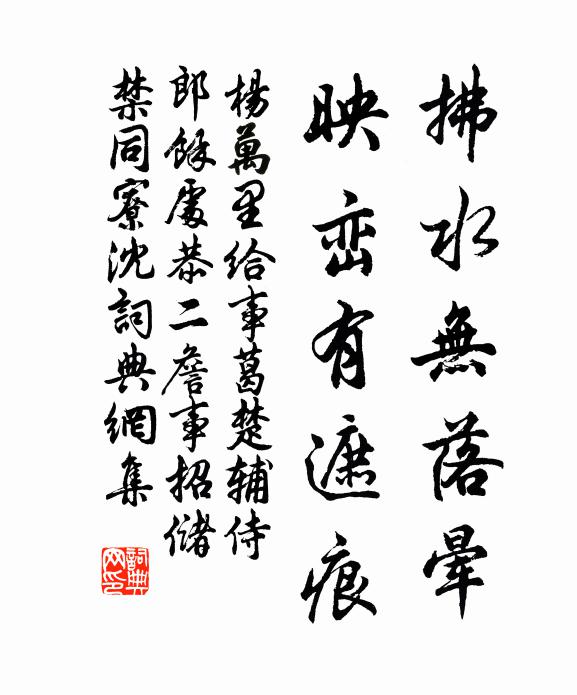 拂水無落暈
映峦有遮痕
楊萬里給事葛楚辅侍
郎餘處恭二詹事招儲
禁同寮沈詞典網集
詞典网印